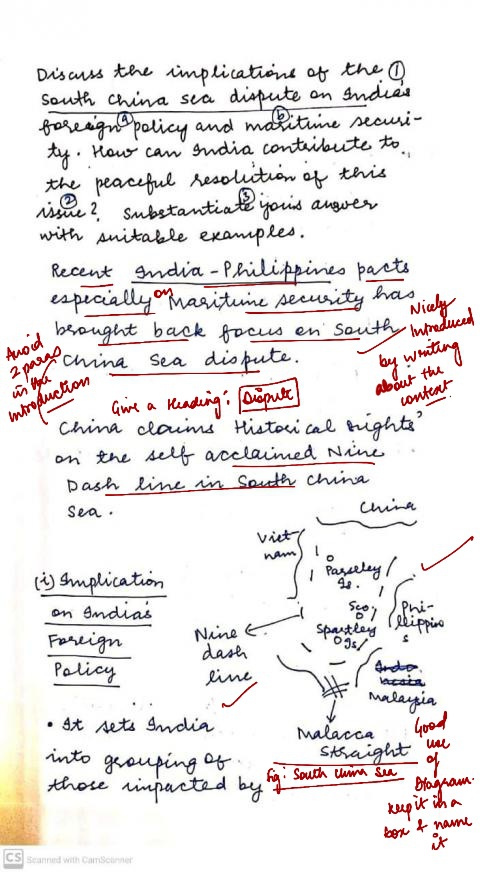 Discuss the implications of the ①
South China sea dispute on India's
ⓐ ⓑ
foreign policy and maritime securi-
ty. How can India contribute to
the peaceful resolution of this
② ③
issue? Substantiate your answer
with suitable examples.
Recent India-Philippines pacts
especially on Maritime security has
brought back focus on South
China Sea dispute.
Avoid
2 paras
in the
introduction
Nicely
Introduced
by writing
about the
context
Give a Heading: Dispute
China claims 'Historical rights'
on the self acclaimed Nine
Dash line in South China
Sea.
China
Viet
nam
Parseley
Is.
Sco
Spartley
Is
Phi-
llippino
s
Nine
dash
line
Malaysia
Malacca
Straight
(i) Implication
on India's
Foreign
Policy
• It sets India
into grouping of
those impacted by
Fig: South China Sea
Good
use
of
Diagram.
Keep it in a
box & name
it
CS Scanned with CamScanner